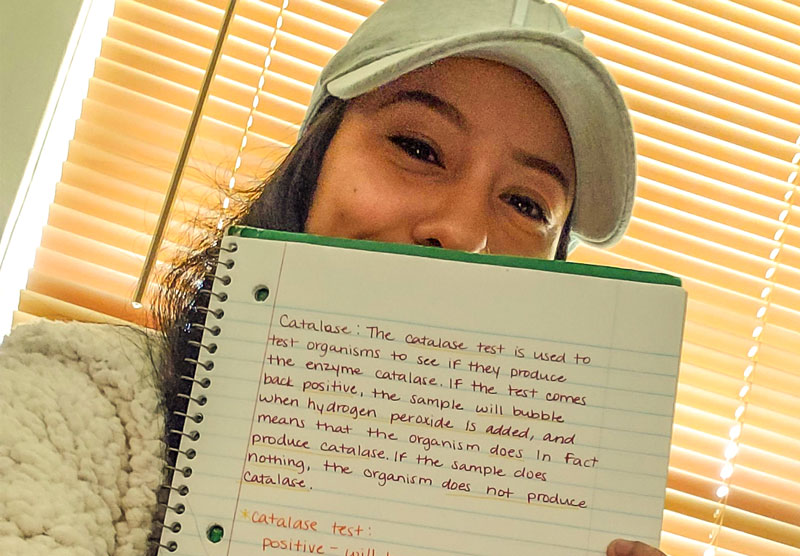 Catalase: The catalase test is used to
test organisms to see if they produce
the enzyme catalase. If the test comes
back positive, the sample will bubble
when hydrogen peroxide is added, and
means that the organism does in fact
produce catalase. If the sample does
nothing, the organism does not produce
catalase.
*catalase test:
positive - will